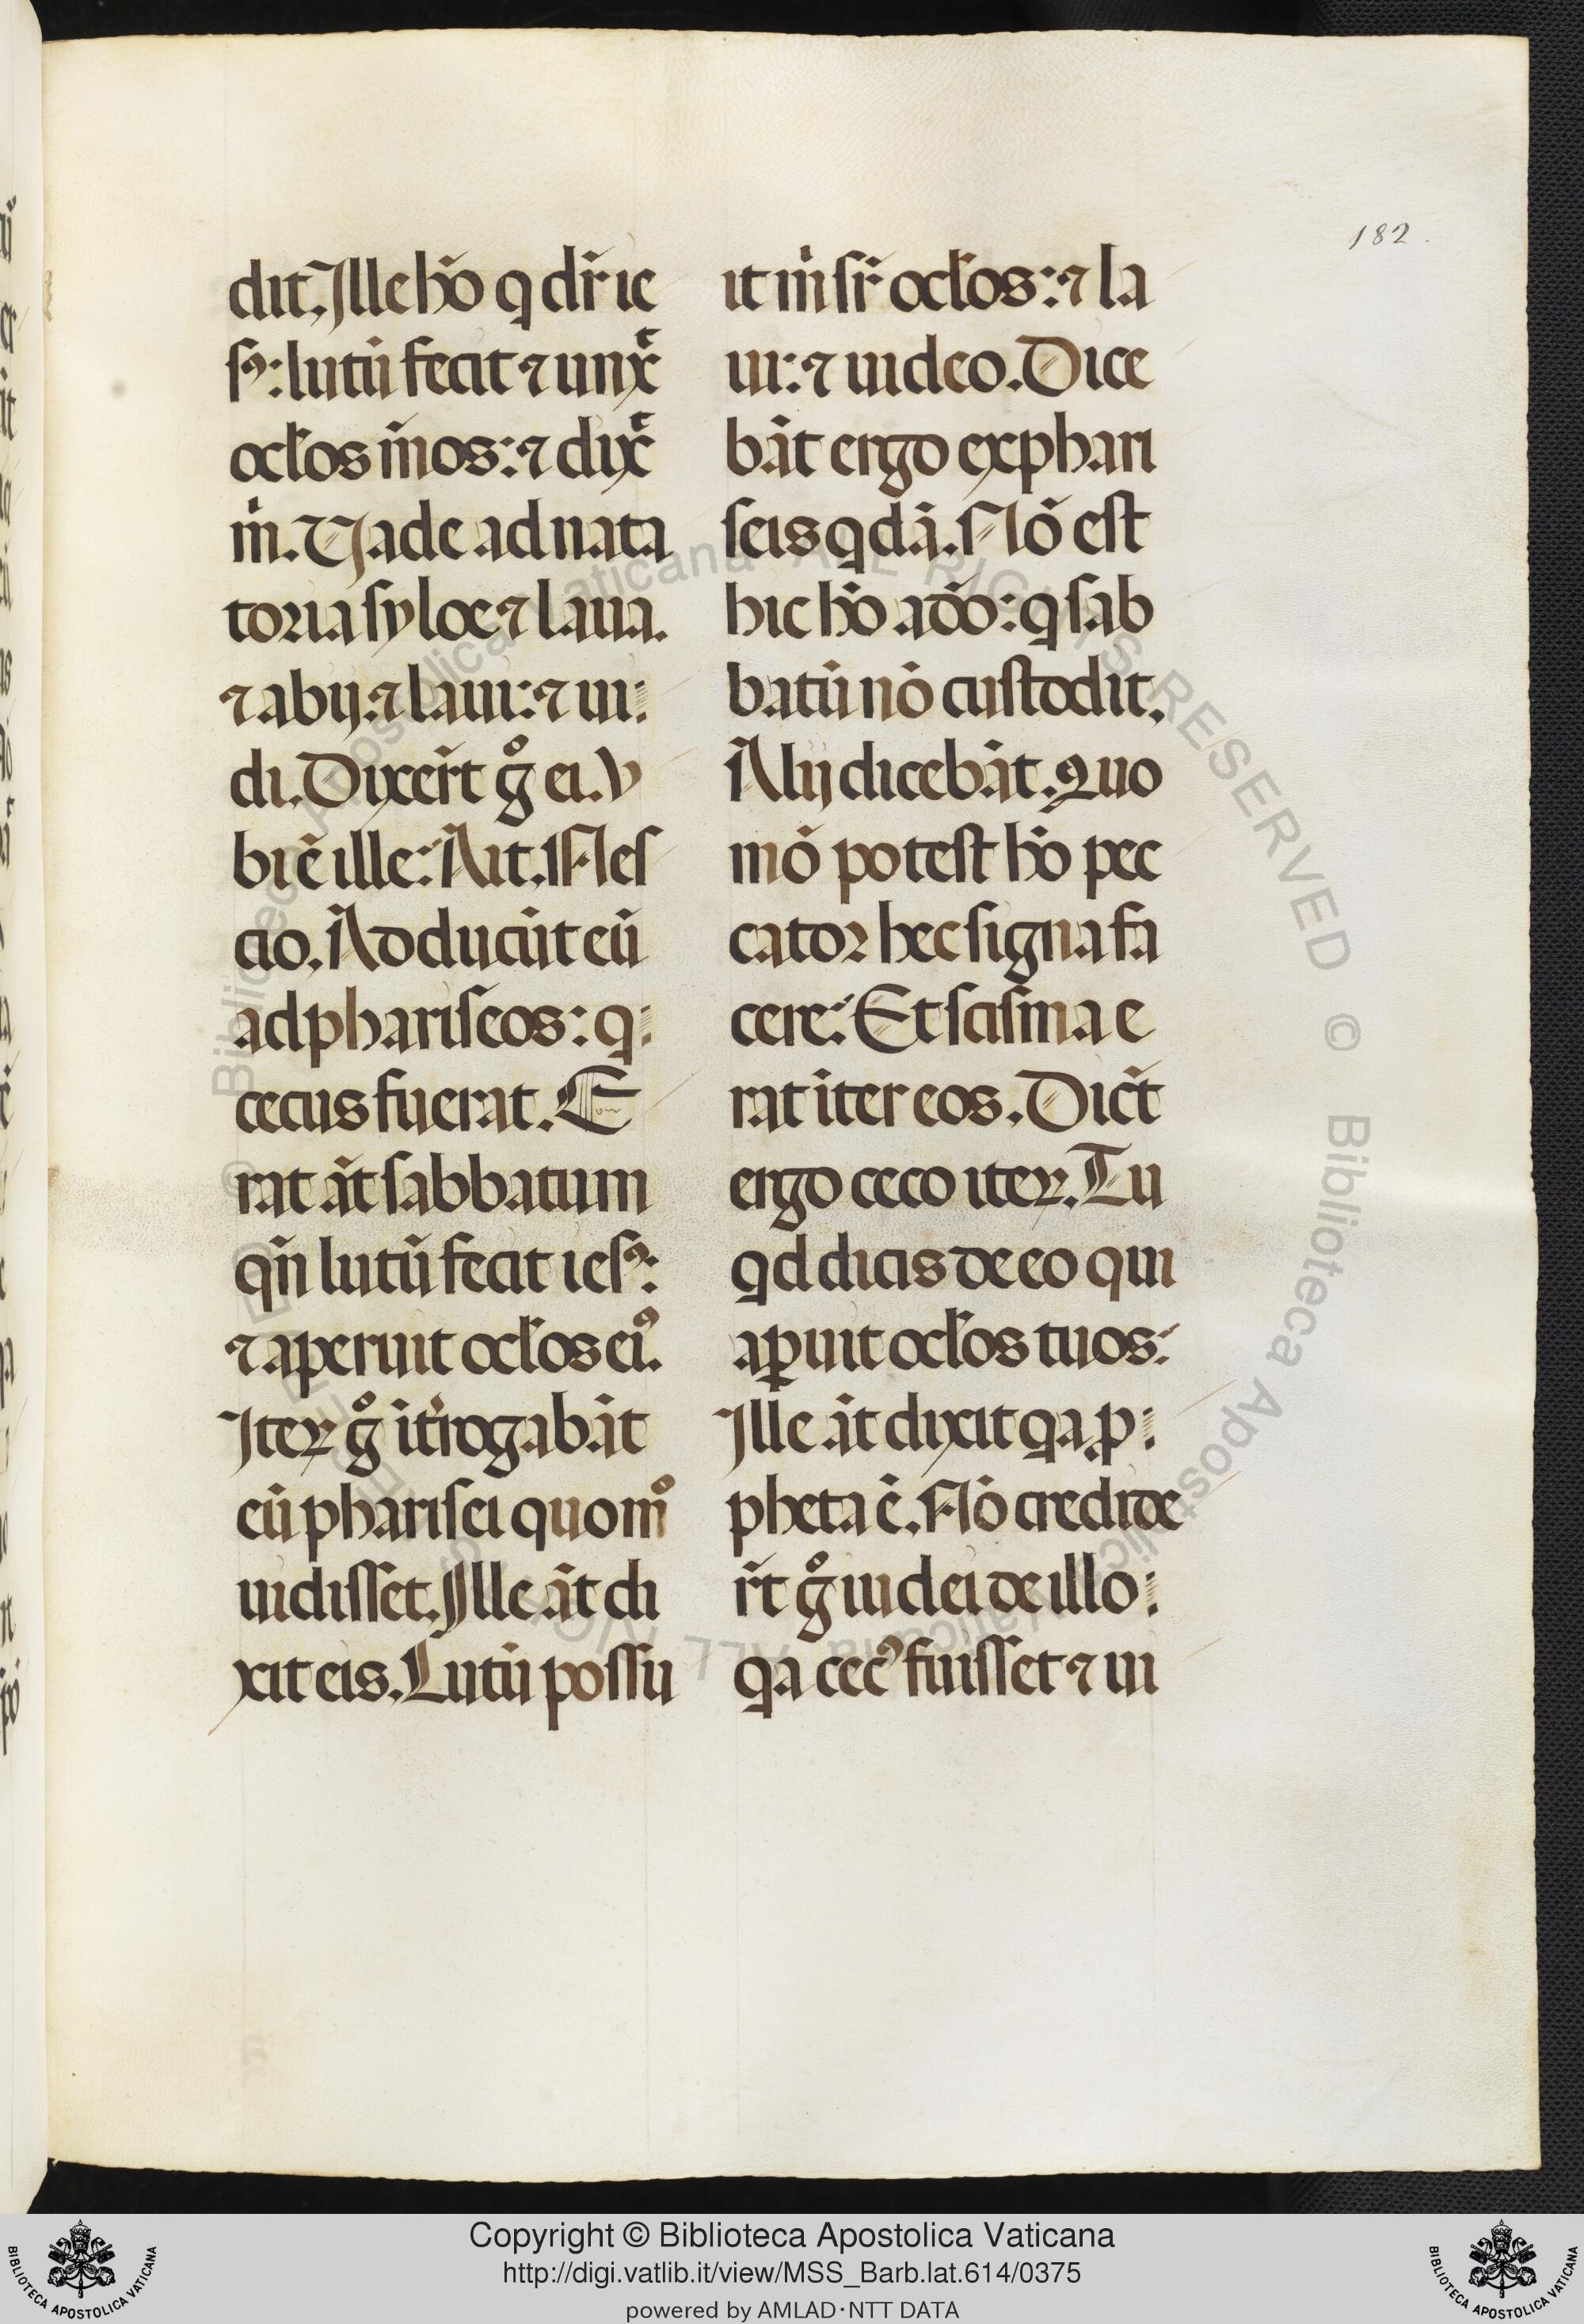 182.
dit. Ille hõ q dr̃ ie
sꝰ: lutũ fecit ⁊ unxͭ
ocl̃os m̃os: ⁊ dixͭ
m̃. Uade ad nata
toria syloe ⁊ laua.
⁊ abij ⁊ laui: ⁊ ui:
di. Dixer̃t gͦ ei. V
bi ẽ ille: Ait. Nes
cio. Adducũt eũ
ad phariseos: q:
cecus fuerat. E
rat ãt sabbatum
qñ lutũ fecit iesꝰ:
⁊ aperuit ocl̃os eiꝰ.
Iteꝝ gͦ ĩt̃rogabãt
eũ pharisei quomͦ
uidisset. Ille ãt di
xit eis. Lutũ possu
it m̃ sr̃ ocl̃os: ⁊ la
ui: ⁊ uideo. Dice
bãt ergo ex phari
seis qdã. Nõ est
hic hõ a dõ: q sab
batũ nõ custodit.
Alij dicebãt. Quo
mõ potest hõ pec
cator hec signa fa
cere: Et scisma e
rat ĩter eos. Dict̃
ergo ceco iteꝝ. Tu
qd dicis de eo qui
aꝑuit ocl̃os tuos:
Ille ãt dixit qa ꝓ:
pheta ẽ. Nõ credide
r̃t gͦ iudei de illo:
qa cecꝰ fuisset ⁊ ui
Copyright © Biblioteca Apostolica Vaticana
http://digi.vatlib.it/view/MSS_Barb.lat.614/0375
powered by AMLAD·NTT DATA
BIBLIOTECA APOSTOLICA VATICANA
BIBLIOTECA APOSTOLICA VATICANA